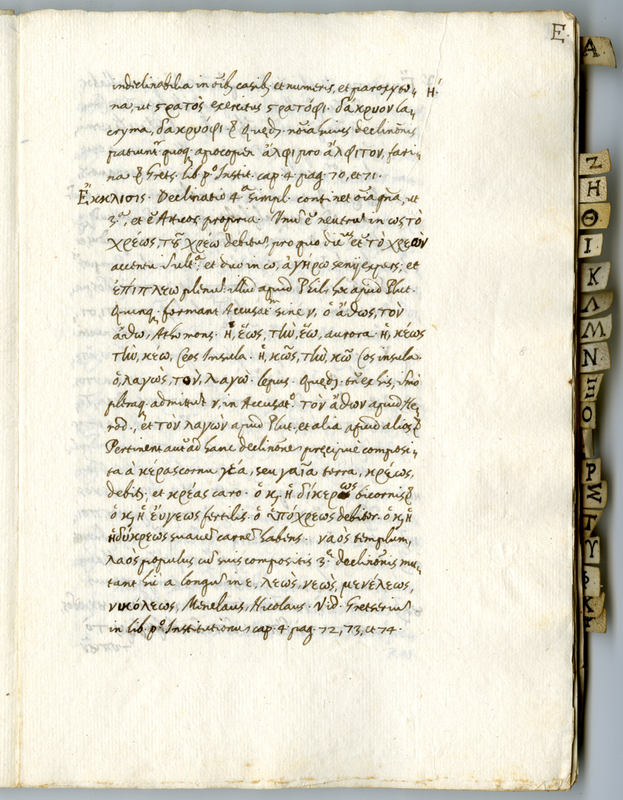 E
indeclinobilia in oib. casib. et numeris, et paroxyto-
na, ut στρατὸς exercitus στρατόφι. δάκρυον la-
cryma, δακρυόφι &c. quedā noia huius declinōnis
patiunt' quoq. apocopen ἄλφι pro ἄλφιτον, fari-
na &c. Grets. lib. pº Instit. cap. 4. pag. 70, et 71.
Ἔκκλισις. Declinatio 4.ª simpl. continet
3.ª, et ē Atticor. propria. neutrū in ως τὸ
χρέως τῦ χρέω debitū, pro quo et τὸ χρεὼν
et duo in ω, ἀγήρω senij expers, et
ἐπίπλεω plenū illud apud Phil. hoc apud Plut.
Quinq. formant Accusat. sine ν, ὁ ἄθως, τὸν
ἄθω, Athos mons. Ἡ, ἕως, τὴν, ἕω, aurora. ἡ, κέως
τὴν, κέω, Ceos Insula. ἡ, κῶς, τὴν, κῶ Cos insula.
ὁ, λαγὼς, τὸν, λαγώ. lepus. Quedā tn̄ ex his, imo
pleraq. admittūt ν, in Accusat.º τὸν ἄθων apud He-
rod., et τὸν λαγὼν apud Plut. et alia apud alios &c
Pertinent aut ad hanc declinōnē precipue composi-
ta à κέρας cornu γέα, seu γαῖα terra, χρέως,
debitū, et κρέας caro. ὁ κ, ἡ δίκερως bicornis &c
ὁ κ, ἡ ἔυγεως fertilis. ὁ ὑπόχρεως debitor. ὁ κ, ἡ
ἡδύκρεως suavē carnē habens. ναὸς templum,
λαὸς populus cū suis compositis 3.ª declinōnis mu-
tant hic α longū in ε, λεὼς, νεὼς, μενέλεως,
νικόλεως, Menelaus, Nicolaus. Vid. Gretserius
in lib. pº Institutionū cap. 4. pag. 72, 73, et 74.
Α
Ζ
Η
Θ
Ι
Κ
Λ
Μ
Ν
Ξ
Ο
Ρ
Σ
Τ
Υ